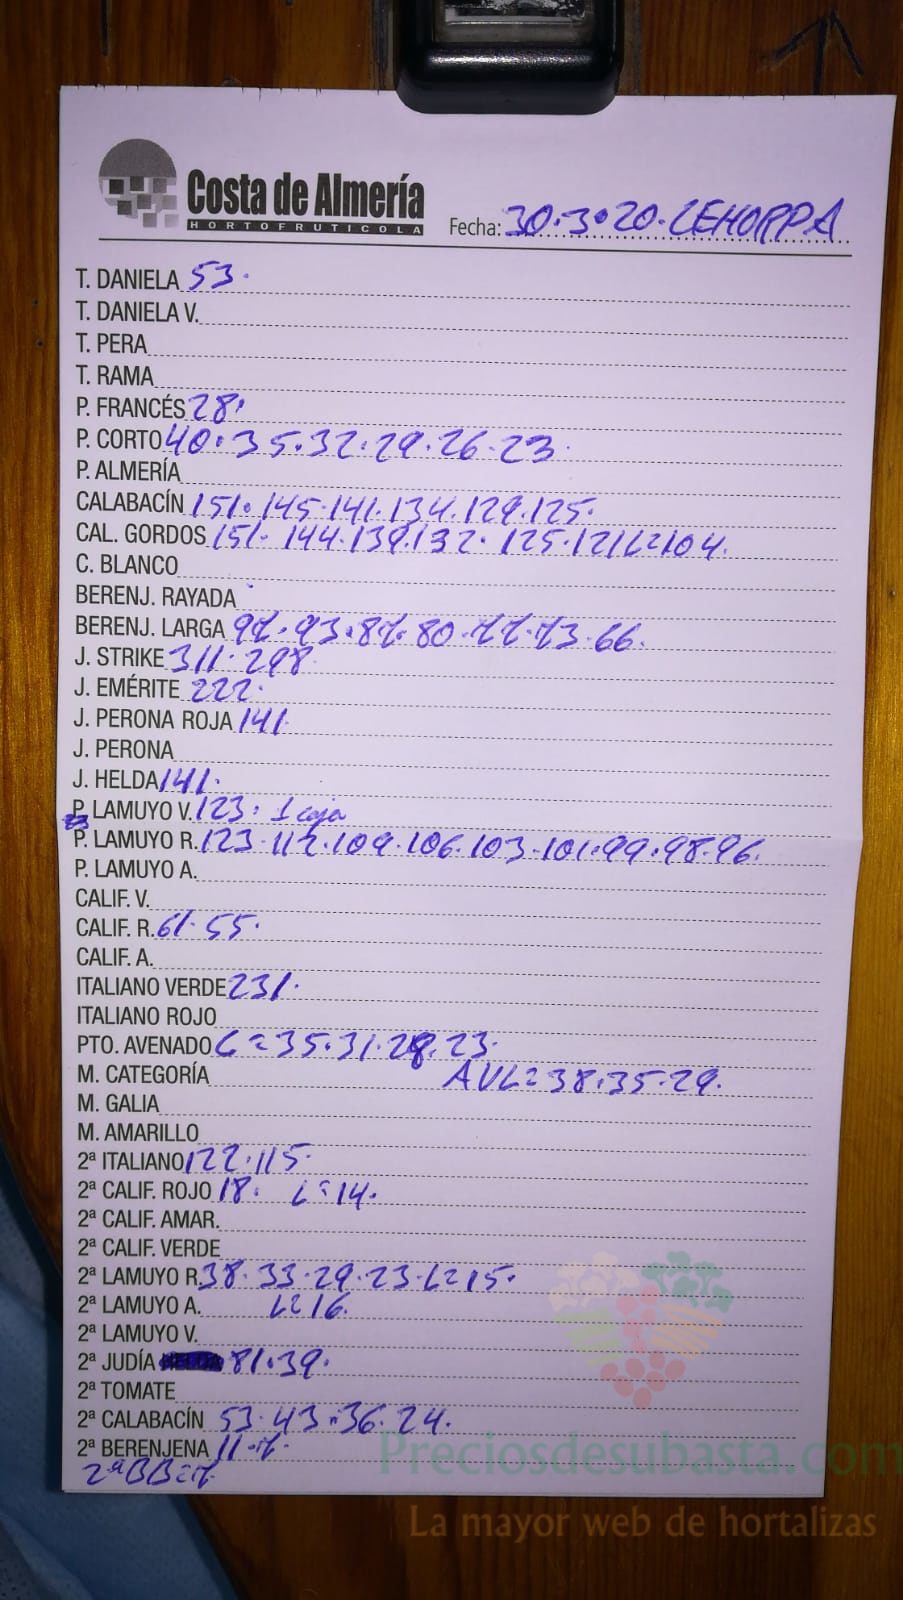 Costa de Almería
HORTOFRUTICOLA
Fecha: 30·3·20·CEHORPA
T. DANIELA 53·
T. DANIELA V.
T. PERA
T. RAMA
P. FRANCÉS 28·
P. CORTO 40·35·32·29·26·23·
P. ALMERÍA
CALABACÍN 151·145·141·134·129·125·
CAL. GORDOS 151·144·139·132·125·121L=104·
C. BLANCO
BERENJ. RAYADA
BERENJ. LARGA 97·93·87·80·77·73·66·
J. STRIKE 311·298·
J. EMÉRITE 222·
J. PERONA ROJA 141·
J. PERONA
J. HELDA 141·
P. LAMUYO V. 123· 1 caja
P. LAMUYO R. 123·117·109·106·103·101·99·98·96·
P. LAMUYO A.
CALIF. V.
CALIF. R. 61·55·
CALIF. A.
ITALIANO VERDE 231·
ITALIANO ROJO
PTO. AVENADO G=35·31·28·23·
M. CATEGORÍA AVL=38·35·29·
M. GALIA
M. AMARILLO
2ª ITALIANO 122·115·
2ª CALIF. ROJO 18· L=14·
2ª CALIF. AMAR.
2ª CALIF. VERDE
2ª LAMUYO R. 38·33·29·23·L=15·
2ª LAMUYO A. L=16·
2ª LAMUYO V.
2ª JUDÍA 81·39·
2ª TOMATE
2ª CALABACÍN 53·43·36·24·
2ª BERENJENA 11·7·
2ªBB=7·
Preciosdesubasta.com
La mayor web de hortalizas